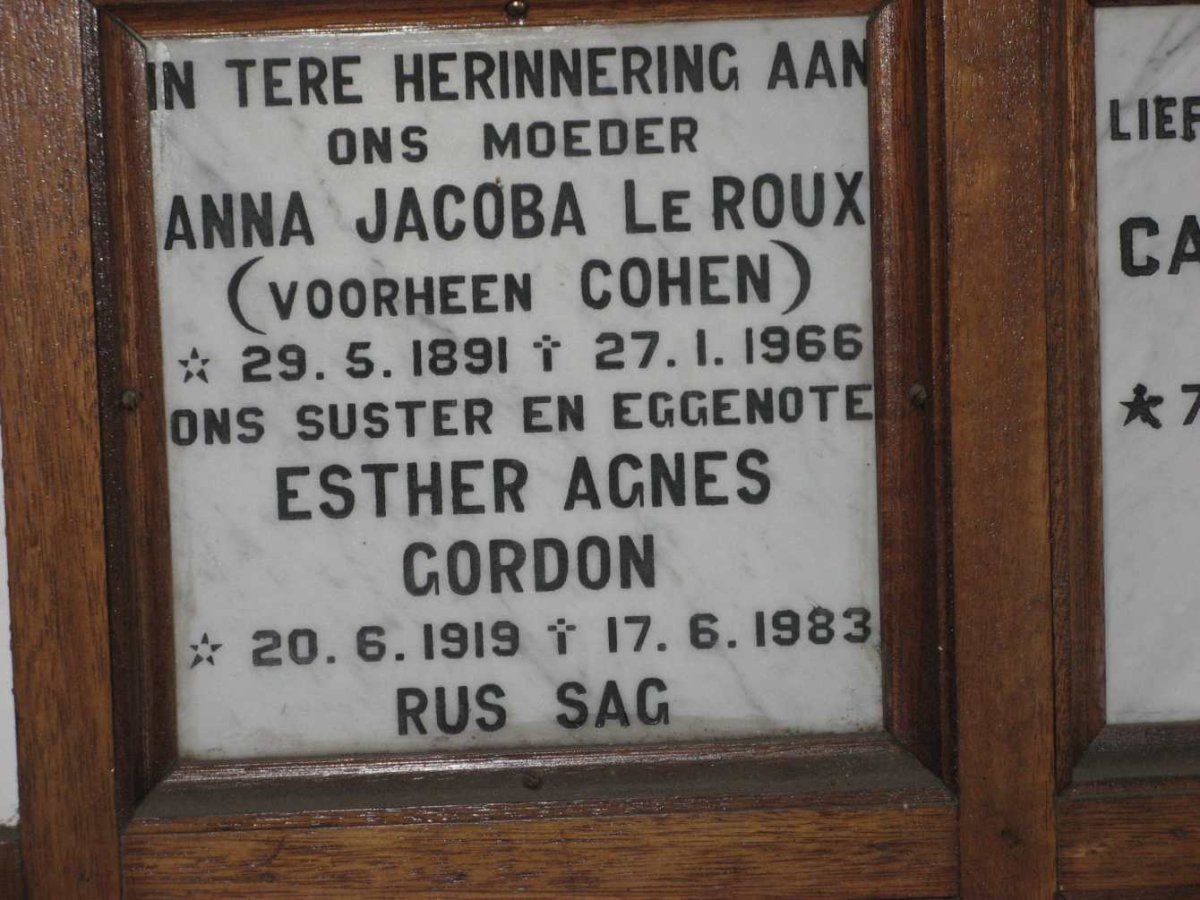 IN TERE HERINNERING AAN
ONS MOEDER
ANNA JACOBA LE ROUX
(VOORHEEN COHEN)
☆ 29. 5. 1891 ✝ 27. 1. 1966
ONS SUSTER EN EGGENOTE
ESTHER AGNES
GORDON
☆ 20. 6. 1919 ✝ 17. 6. 1983
RUS SAG